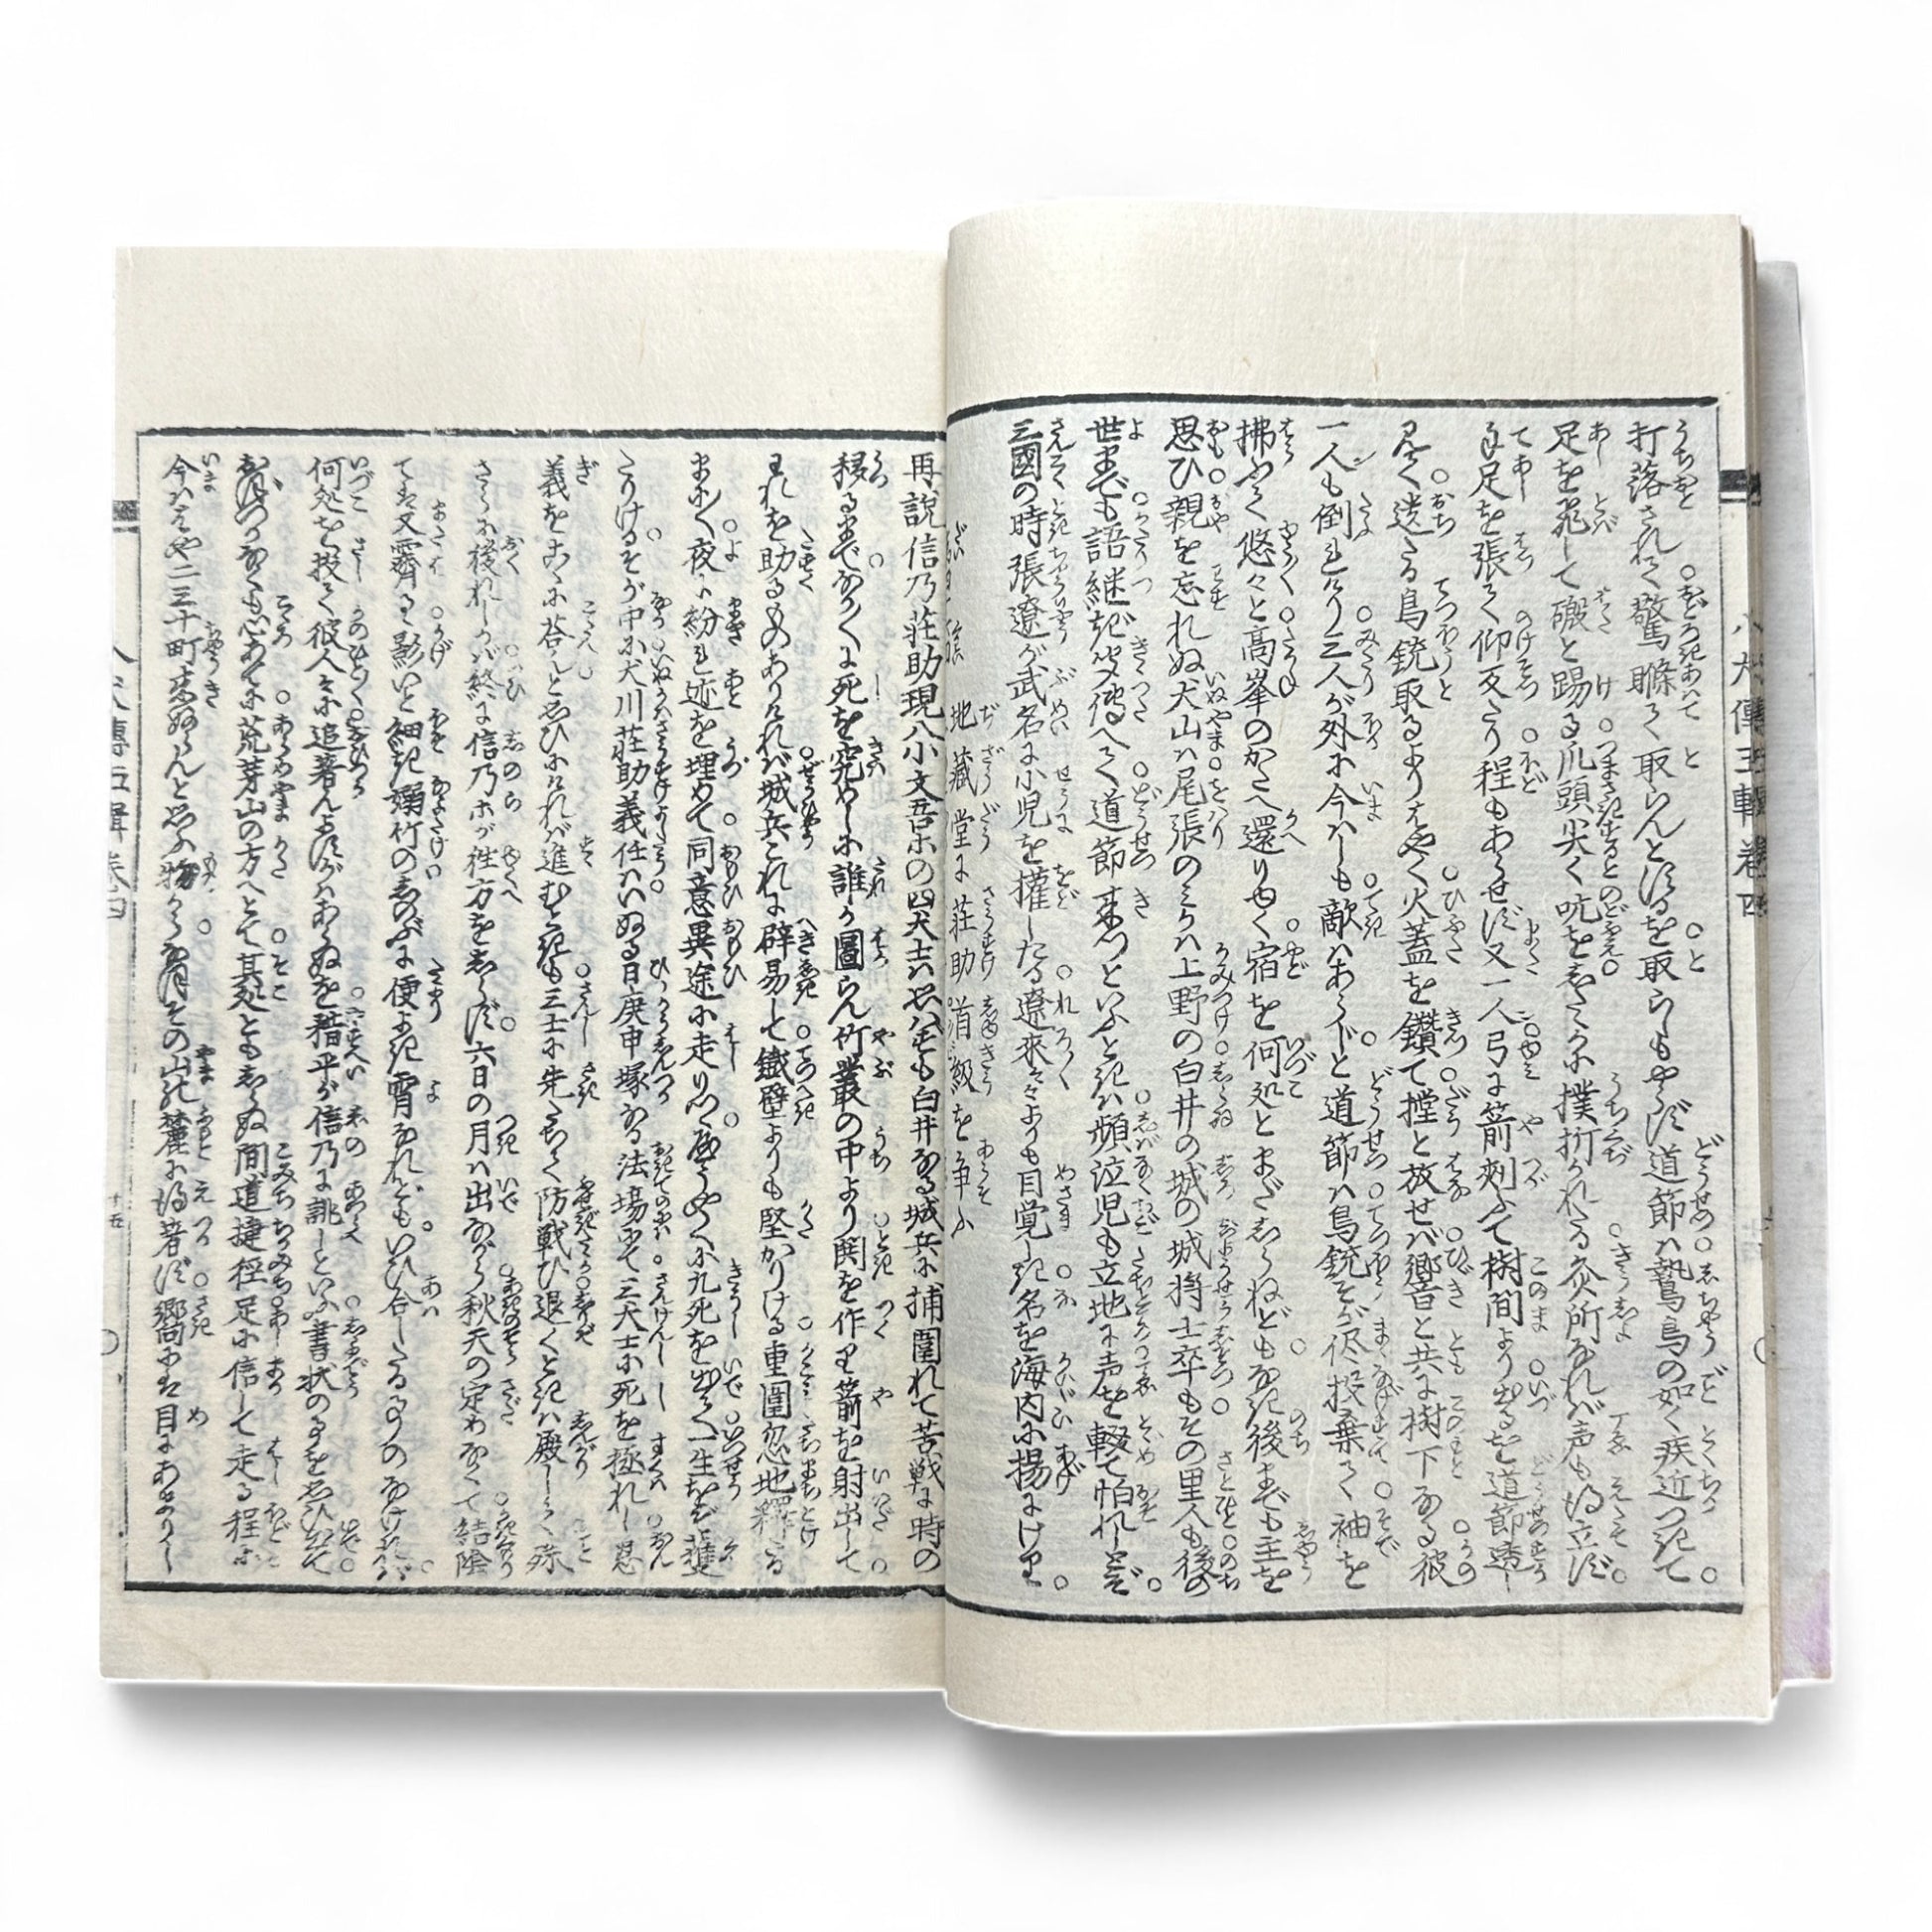 八犬傳五輯卷四
打落されて驚騰て取らんとするを取らしもやらず道節ハ鷙鳥の如く疾近つきて
足を飛して礑と踢る爪頭尖く吭をしたゝかに撲折れたる灸所なれバ声も得立ず
手足を張て仰反たり程もあらせず又一人弓に箭刺ふて樹間より出るを道節透し
見て遺たる鳥銃取るよりはやく火蓋を鑽て撐と放せバ響音と共に樹下なる彼
一人も倒れけり三人が外に今ハしも敵ハあらじと道節ハ鳥銃をが侭投棄て袖を
拂ふて悠々と高峯のかたへ還りゆく宿を何処とまだしらねどもなき後までも主を
思ひ親を忘れぬ犬山ハ尾張のミかハ上野の白井の城の城将士卒もその里人も後の
世までも語継ぎ聞傳へて道節来つといふときハ頻泣児も立地に声を輟て怕れしとぞ
三國の時張遼が武名に小児を懼したる遼来々よりも目覚しき名を海内に揚にけり
地藏堂に荘助首級を争ふ
再説信乃荘助現八小文吾ホの四犬士ハ思ハずも白井なる城兵に捕圍れて苦戦に時の
移るまでかくて死を究めしに誰か圖らん竹叢の中より鬨を作り箭を射出して
われを助るものありけれバ城兵これに辟易して鐵壁よりも堅かりける重圍忽地釋たる
まゝに夜に紛れ迹を埋めて同意異途に走りつゝ辛うやくに九死を出て一生をぞ獲
たりけるそが中に犬川荘助義任ハいぬる日庚申塚なる法場にて三犬士に死を拯れし恩
義をこゝに荅んとおもひにけれバ進むときも三士に先たちて防戦ひ退くときハ殿して殊
さらに後れしかバ終に信乃ホが往方をしらず六日の月ハ出ながら秋天の定めなくて結陰
てハ又霽る影いと細き嫋竹のしのぶに便よき宵なれども いひ合したる事のなけれバ
何処を投て彼人々に追著んよすがハあらぬを矠平が信乃に誂しといふ書状の事をおもひいでて
なほつかなくも心あてに荒芽山の方へとて其処ともしらぬ間道捷径足に信して走る程に
今ハはや二三十町来ぬらんと思ふ物からなほその山の麓に得著ず郷にハ目にあまりし
八犬傳五輯卷四
十五